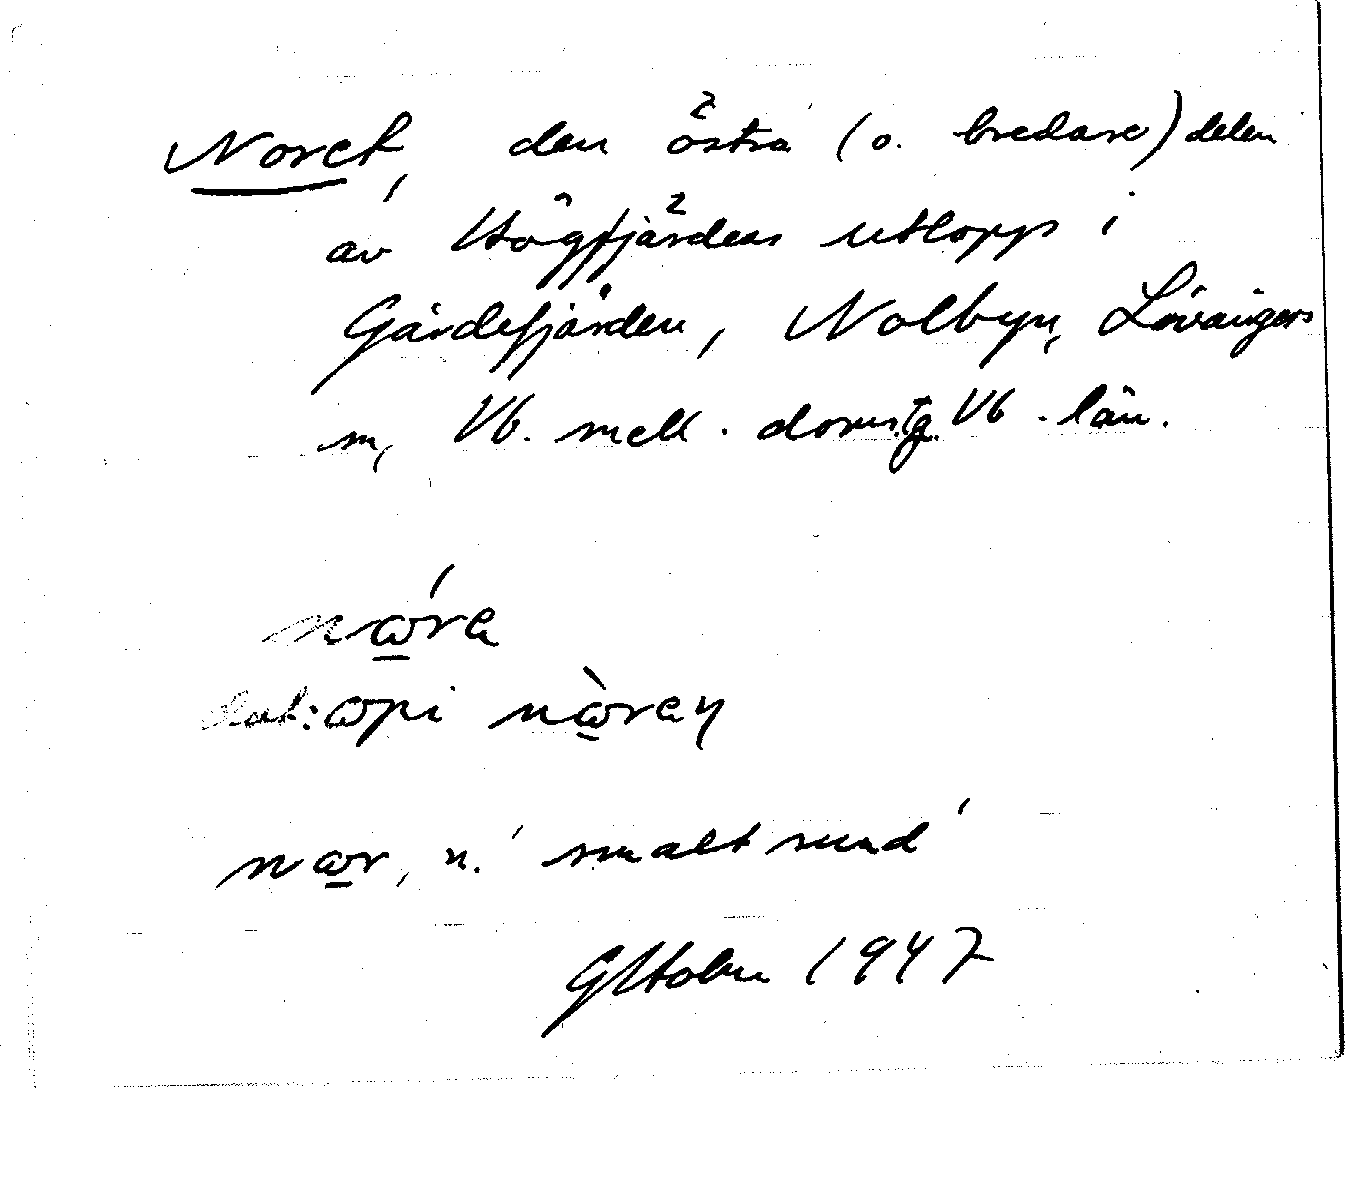 Noret, den östra (o. bredare) delen
av Högfjärdens utlopp i
Gärdefjärden, Nolbyn, Lövångers
sn, Vb. mell. domsg. Vb. län.
nώ̱ra
dat: ωpi nὼ̱reŋ
nω̱r, n. 'smalt sund'
GHolm 1947